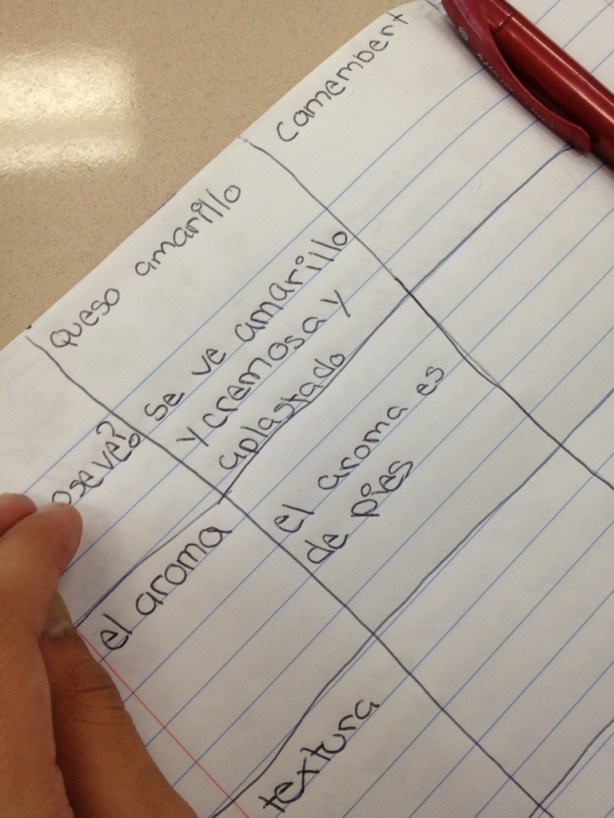 Queso amarillo
Camembert
se ve?
se ve amarillo
y cremosa y
aplastado
el aroma
el aroma es
de pies
textura